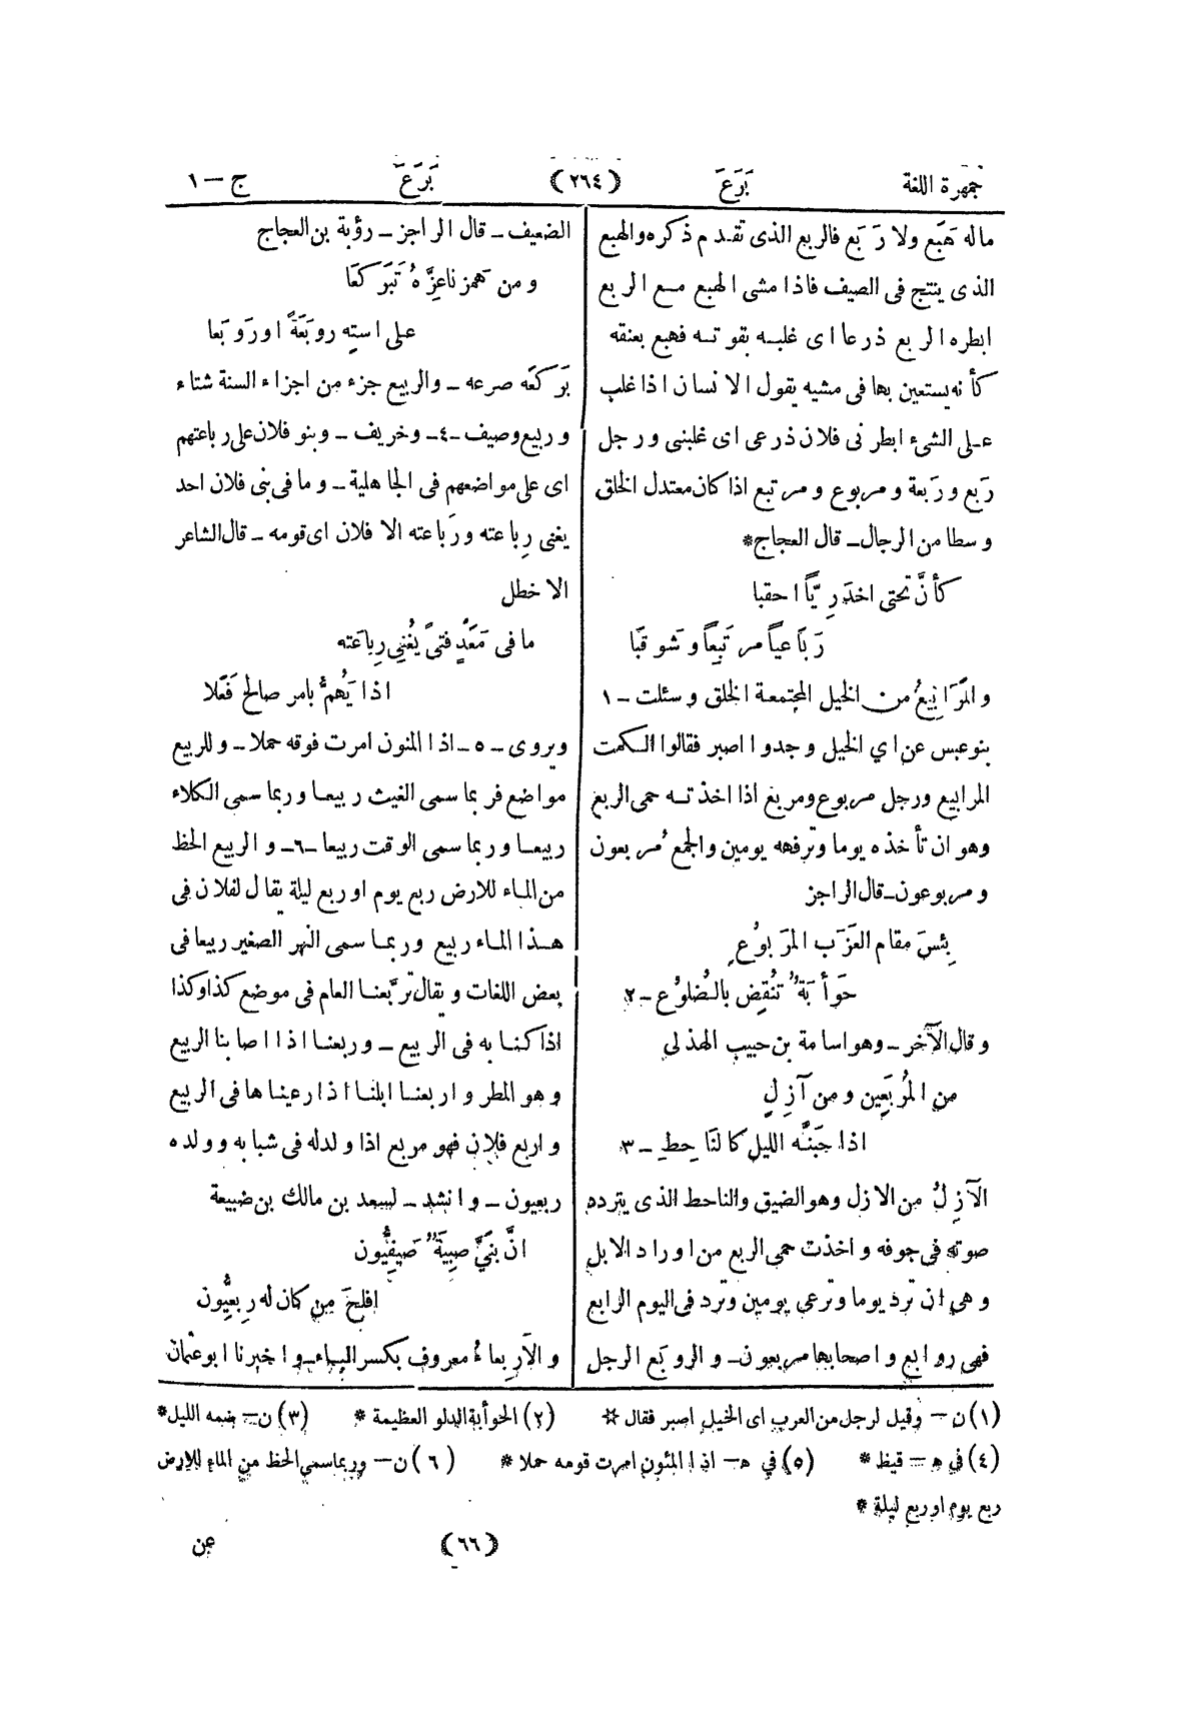 جمهرة اللغة
بَرَعَ
(٢٦٤)
بَرَعَ
ج — ١
ماله هَبَع ولا رَبَع فالربع الذى تقدم ذكره والهبع
الذى ينتج فى الصيف فاذا مشى الهبع مع الربع
ابطره الربع ذرعا اى غلبه بقوته فهبع بعنقه
كأنه يستعين بها فى مشيه يقول الانسان اذا غلب
على الشىء ابطرنى فلان ذرعى اى غلبنى ورجل
رَبع ورَبعة ومربوع ومرتبع اذا كان معتدل الخلق
وسطا من الرجال ــ قال العجاج*
كأنَّ تحتى اخدَرِيّاً احقبا
رَبَاعياً مرتَبِعاً وشوقبا
والمَرَابِيعُ من الخيل المجتمعة الخلق وسئلت ــ ١
بنوعبس عن اي الخيل وجدوا اصبر فقالوا الكمت
المرابيع ورجل مربوع ومربع اذا اخذته حمى الربع
وهو ان تأخذه يوما وترفهه يومين والجمع مُربعون
ومربوعون ــ قال الراجز
بِئسَ مقام العَزَب المَربوُعِ
حَوأبَةٌ تنُقِض بالضلوُع ــ ٢
وقال الآخر ــ وهو اسامة بن حبيب الهذلى
من المُربَعِين ومن آزِلٍ
اذا جَنَّه الليل كالنَاحِطِ ــ ٣
الآزِلُ من الازل وهو الضيق والناحط الذى يتردد
صوته فى جوفه واخذت حمى الربع من اوراد الابل
وهى ان ترد يوما وترعى يومين وترد فى اليوم الرابع
فهى روابع واصحابها مربعون ــ والروبَع الرجل
الضعيف ــ قال الراجز ــ رؤبة بن العجاج
ومن هَمزنا عِزَّهُ تَبَركعَا
على استِه روبَعَةً اورَوبَعا
بَركعَه صرعه ــ والربيع جزء من اجزاء السنة شتاء
وربيع وصيف ــ٤ــ وخريف ــ وبنو فلان على رباعتهم
اى على مواضعهم فى الجاهلية ــ وما فى بنى فلان احد
يغنى رِباعته ورَباعته الا فلان اى قومه ــ قال الشاعر
الاخطل
ما فى مَعَدٍّ فتىً يُغنِى رِباعَته
اذا يَهُمُّ بامر صالح فَعَلا
ويروى ــ ٥ ــ اذا المنون امرت فوقه حملا ــ وللربيع
مواضع فربما سمى الغيث ربيعا وربما سمى الكلاء
ربيعا وربما سمى الوقت ربيعا ــ٦ــ والربيع الحظ
من الماء للارض ربع يوم او ربع ليلة يقال لفلان فى
هذا الماء ربيع وربما سمى النهر الصغير ربيعا فى
بعض اللغات ويقال تربَّعنا العام فى موضع كذا وكذا
اذا كنا به فى الربيع ــ وربعنا اذا اصابنا الربيع
وهو المطر واربعنا ابلنا اذا رعيناها فى الربيع
واربع فلان فهو مربع اذا ولد له فى شبابه وولده
ربعيون ــ وانشد ــ لسعد بن مالك بن ضبيعة
انَّ بَنيَّ صِبيَةٌ صَيفِيُّون
افلحَ مِن كان له رِبعِيُّون
والاَربِعاءُ معروف بكسر الباء ــ واخبرنا ابوعثمان
(١) ن — وقيل لرجل من العرب اى الخيل اصبر فقال * (٢) الحوأبة الدلو العظيمة * (٣) ن — ضمه الليل *
(٤) في ه — قيظ * (٥) في ه — اذا المئون امرت قومه حملا * (٦) ن — وربما سمي الحظ من الماء للارض
ربع يوم او ربع ليلة *
(٦٦)
عن